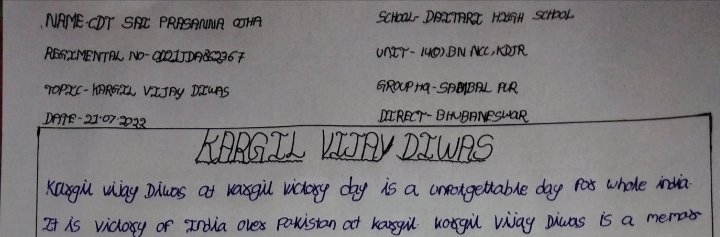 NAME-CDT SAI PRASANNA OJHA
SCHOOL- DAITARI HIGH SCHOOL
REGIMENTAL NO-
UNIT- 14(O) BN NCC, KDJR
TOPIC- KARGIL VIJAY DIWAS
GROUP HQ- SAMBAL PUR
DATE-21-07-2022
DIRECT- BHUBANESWAR
KARGIL VIJAY DIWAS
Kargil vijay Diwas at kargil victory day is a unforgettable day for whole india.
It is victory of India over Pakistan at kargil kargil Vijay Diwas is a memor